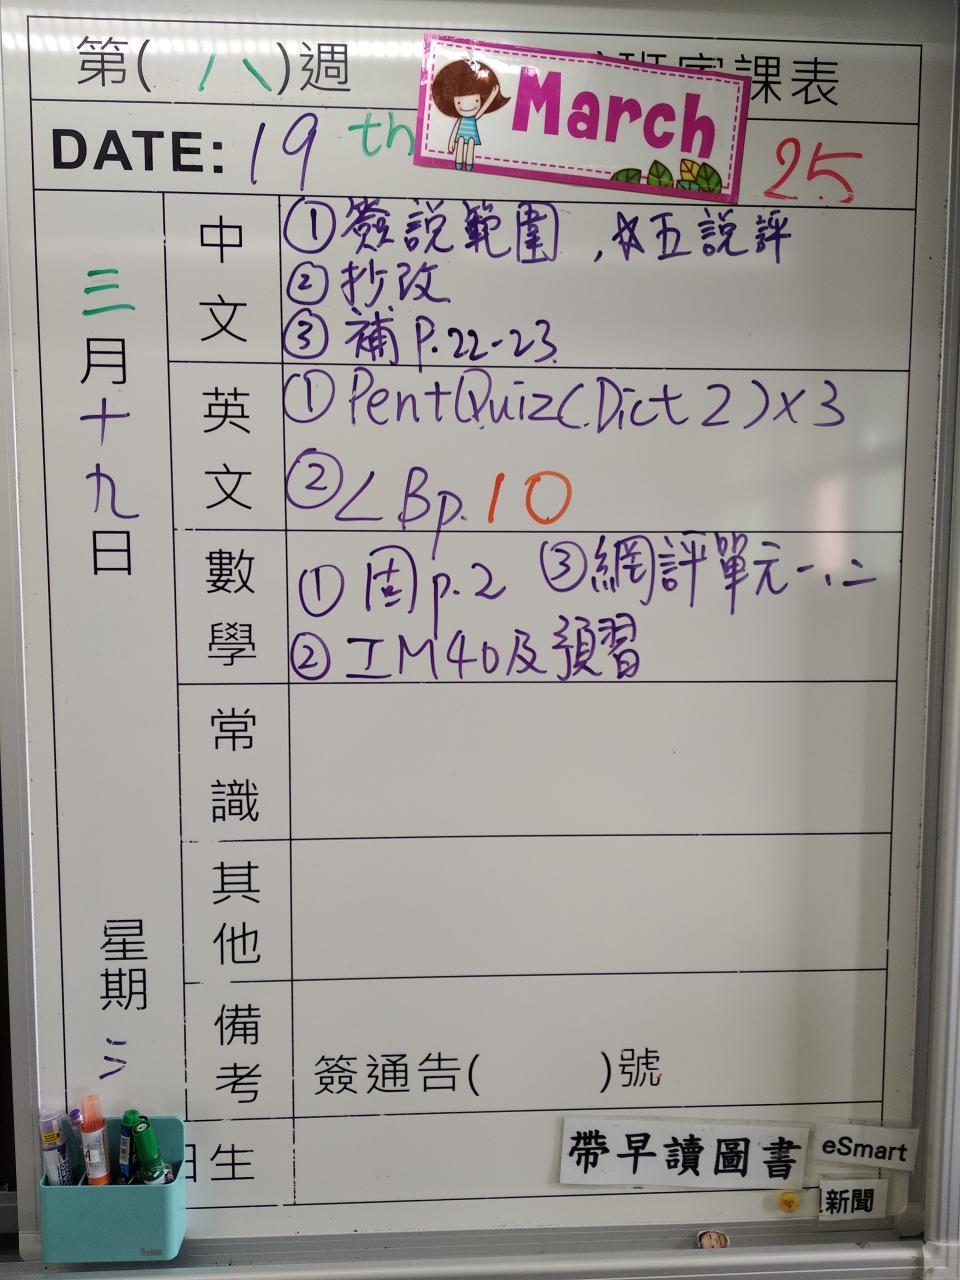 第(八)週
課表
DATE: 19th March 25
三月十九日
星期三
中文
①簽説範圍,☆五説評
②抄改
③補P.22-23
英文
①Pent Quiz(Dict 2)×3
②LBp.10
數學
①固p.2 ③網評單元一、二
②工M40及預習
常識
其他
備考
簽通告( )號
生
帶早讀圖書
eSmart
新聞